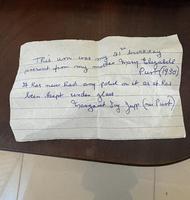 This urn was my 21st birthday
present from my mother Mary Elizabeth
Purt (1930)
It has never had any polish on it as it has
been kept under glass
Margaret Joy Jupp (née Purt)